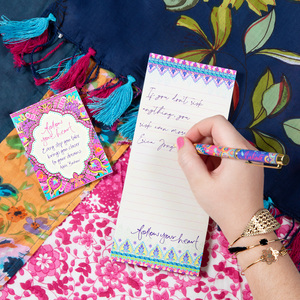 Follow
your heart
Every step you take
brings you closer
to your dreams
If you don't risk
anything, you
risk even more
Follow your heart